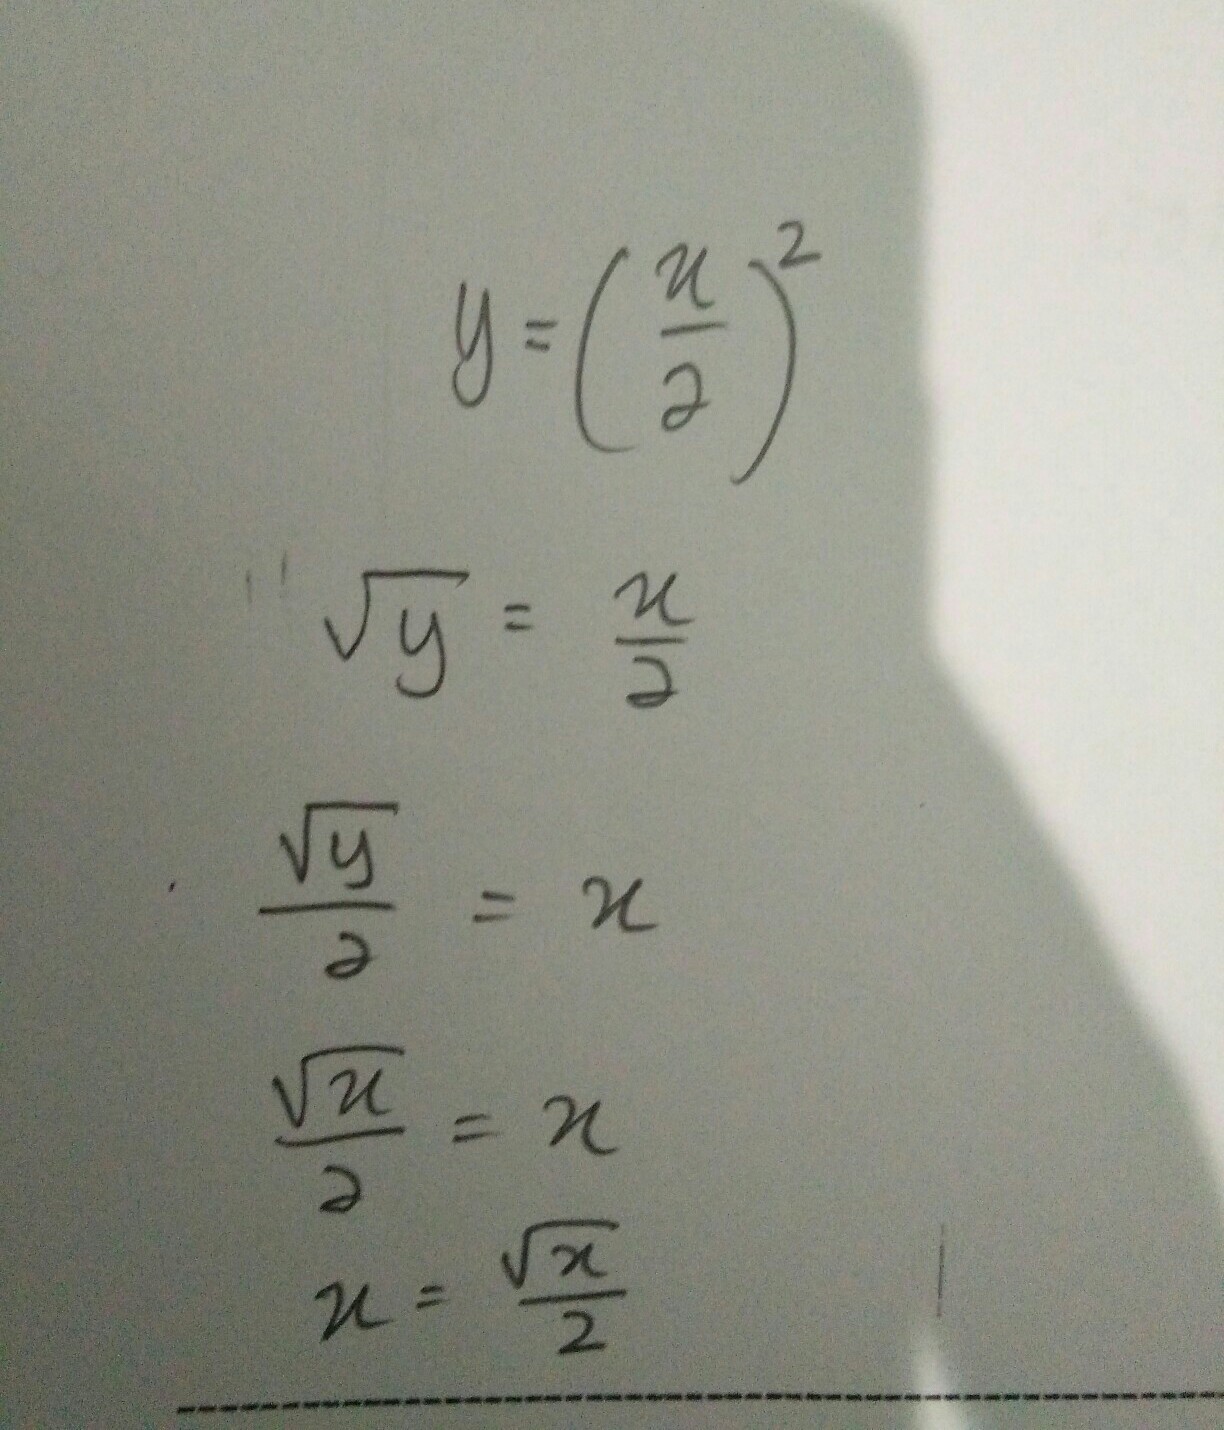 y = (x/2)²
√y = x/2
√y/2 = x
√x/2 = x
x = √x/2